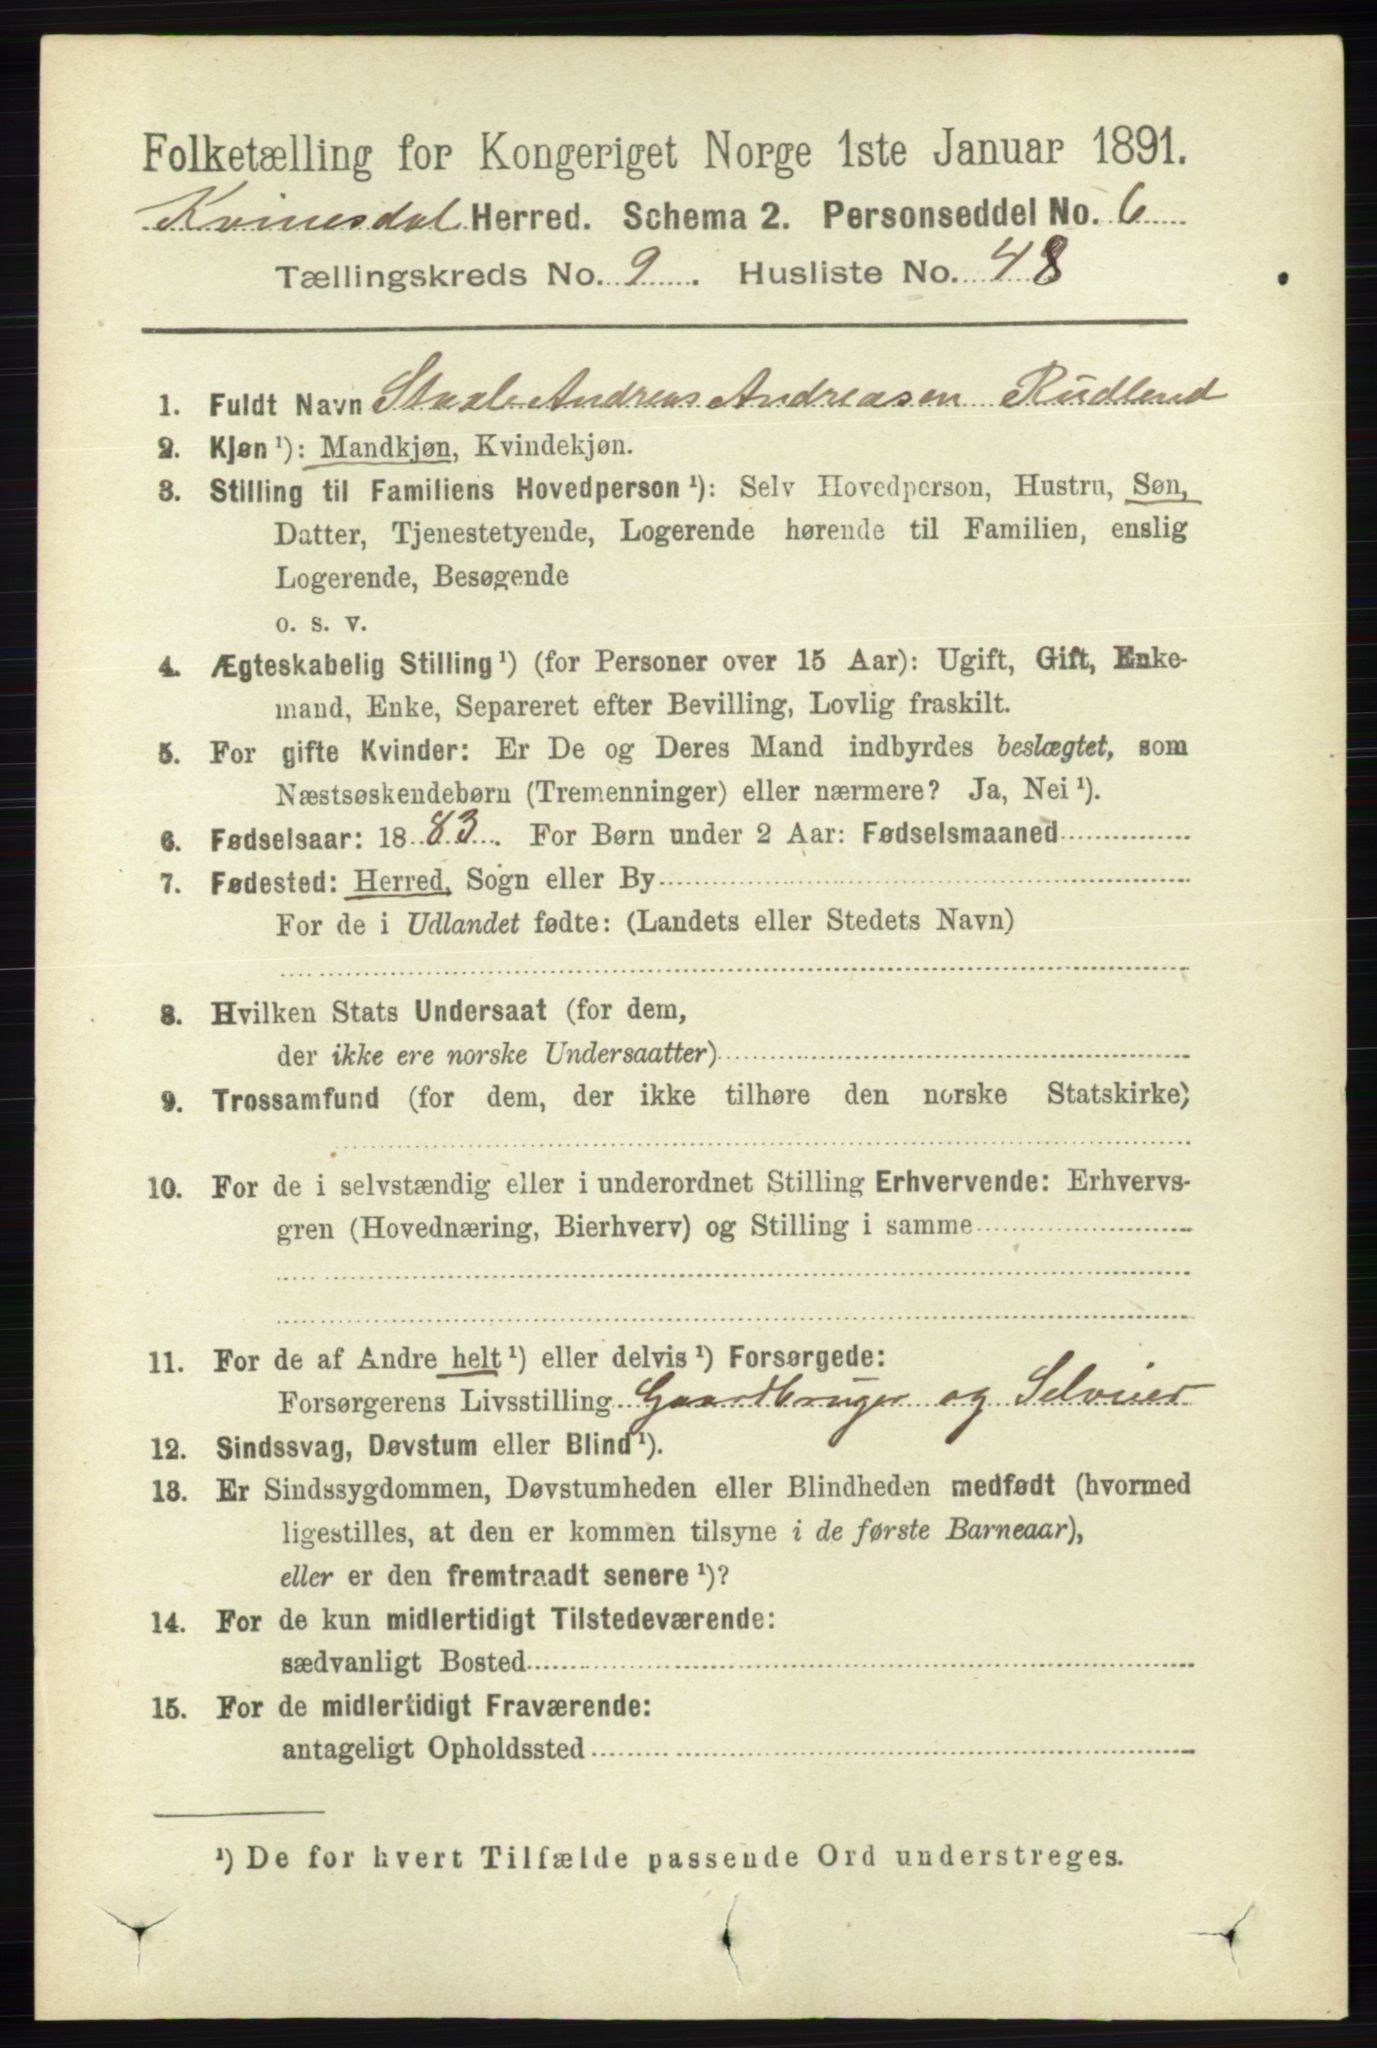 Folketælling for Kongeriget Norge 1ste Januar 1891.
Kvinesdal Herred. Schema 2. Personseddel No. 6
Tællingskreds No. 9. Husliste No. 48
1. Fuldt Navn Staale Andreas Andreasen Rudlend
2. Kjøn ¹): Mandkjøn, Kvindekjøn.
3. Stilling til Familiens Hovedperson ¹): Selv Hovedperson, Hustru, Søn,
Datter, Tjenestetyende, Logerende hørende til Familien, enslig
Logerende, Besøgende
o. s. v.
4. Ægteskabelig Stilling ¹) (for Personer over 15 Aar): Ugift, Gift, Enke-
mand, Enke, Separeret efter Bevilling, Lovlig fraskilt.
5. For gifte Kvinder: Er De og Deres Mand indbyrdes beslægtet, som
Næstsøskendebørn (Tremenninger) eller nærmere? Ja, Nei ¹).
6. Fødselsaar: 1883. For Børn under 2 Aar: Fødselsmaaned
7. Fødested: Herred, Sogn eller By
For de i Udlandet fødte: (Landets eller Stedets Navn)
8. Hvilken Stats Undersaat (for dem,
der ikke ere norske Undersaatter)
9. Trossamfund (for dem, der ikke tilhøre den norske Statskirke)
10. For de i selvstændig eller i underordnet Stilling Erhvervende: Erhvervs-
gren (Hovednæring, Bierhverv) og Stilling i samme
11. For de af Andre helt ¹) eller delvis ¹) Forsørgede:
Forsørgerens Livsstilling Gaardbruger og Selveier
12. Sindssvag, Døvstum eller Blind ¹).
13. Er Sindssygdommen, Døvstumheden eller Blindheden medfødt (hvormed
ligestilles, at den er kommen tilsyne i de første Barneaar),
eller er den fremtraadt senere ¹)?
14. For de kun midlertidigt Tilstedeværende:
sædvanligt Bosted
15. For de midlertidigt Fraværende:
antageligt Opholdssted
¹) De for hvert Tilfælde passende Ord understreges.